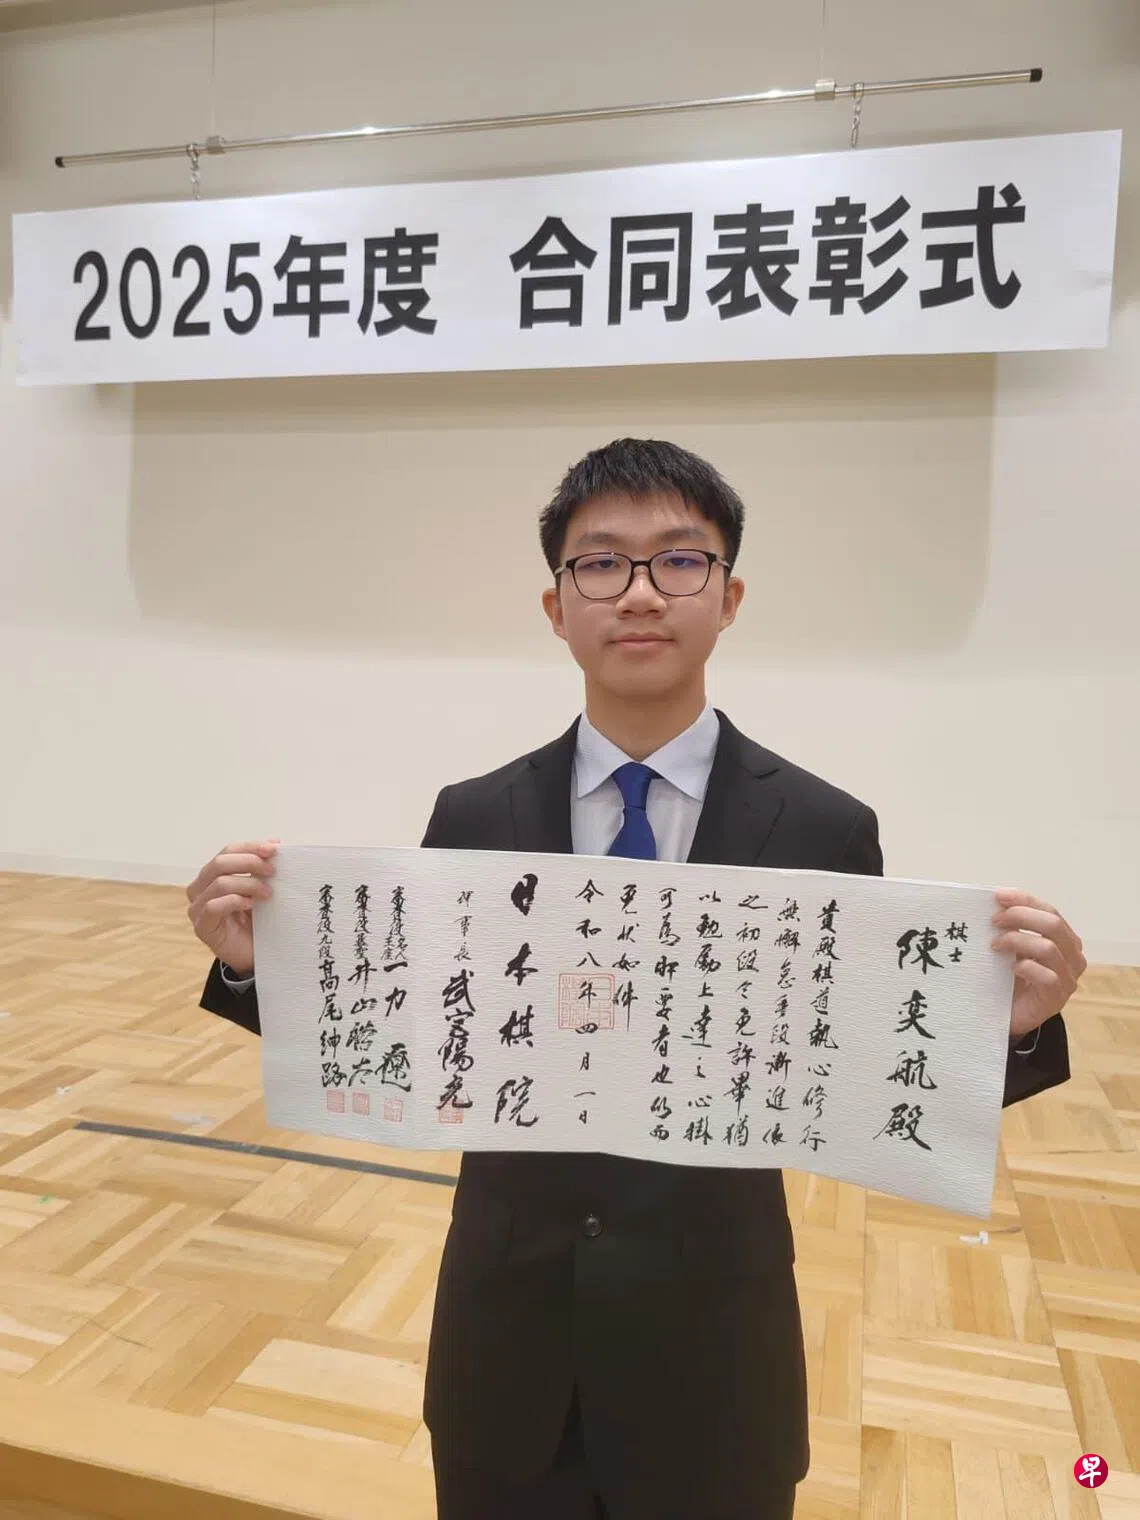 2025年度 合同表彰式
棋士
陳奕航殿
貴殿棋道執心修行
無懈怠手段漸進依
之初段令免許畢猶
以勉励上達之心掛
可為肝要者也仍而
免状如件
令和八年四月一日
日本棋院
理事長 武宮陽光
一力遼
井山裕太
九段 高尾紳路
早